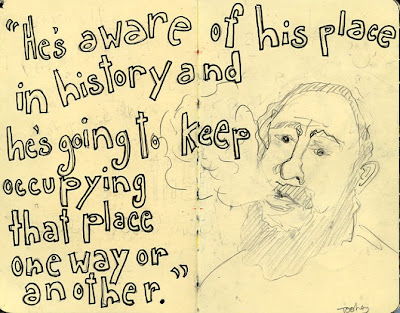 "He's aware of his place
in history and
he's going to keep
occupying
that place
one way or
another."